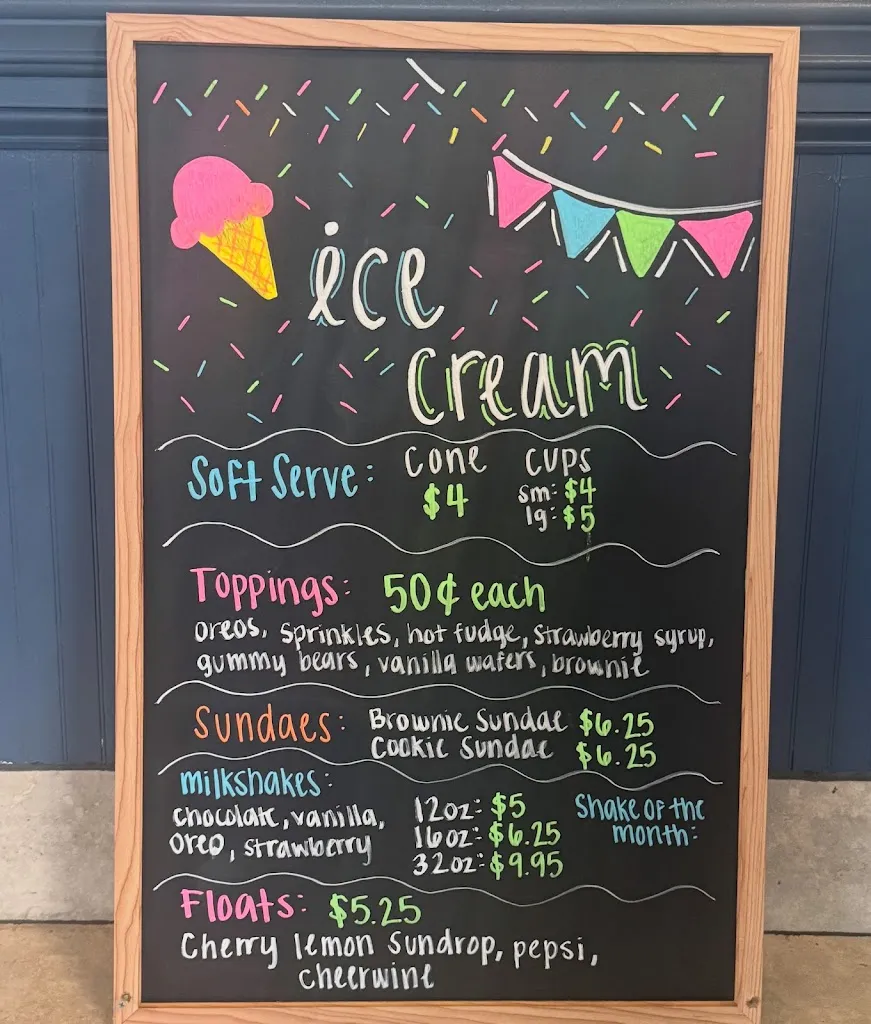 ice
cream
Soft Serve: cone cups
$4 sm: $4
lg: $5
Toppings: 50¢ each
oreos, sprinkles, hot fudge, strawberry syrup,
gummy bears, vanilla wafers, brownie
Sundaes: Brownie Sundae $6.25
Cookie Sundae $6.25
milkshakes:
chocolate, vanilla,
oreo, strawberry
12oz: $5
16oz: $6.25
32oz: $9.95
Shake of the
month:
Floats: $5.25
Cherry lemon Sundrop, pepsi,
cheerwine